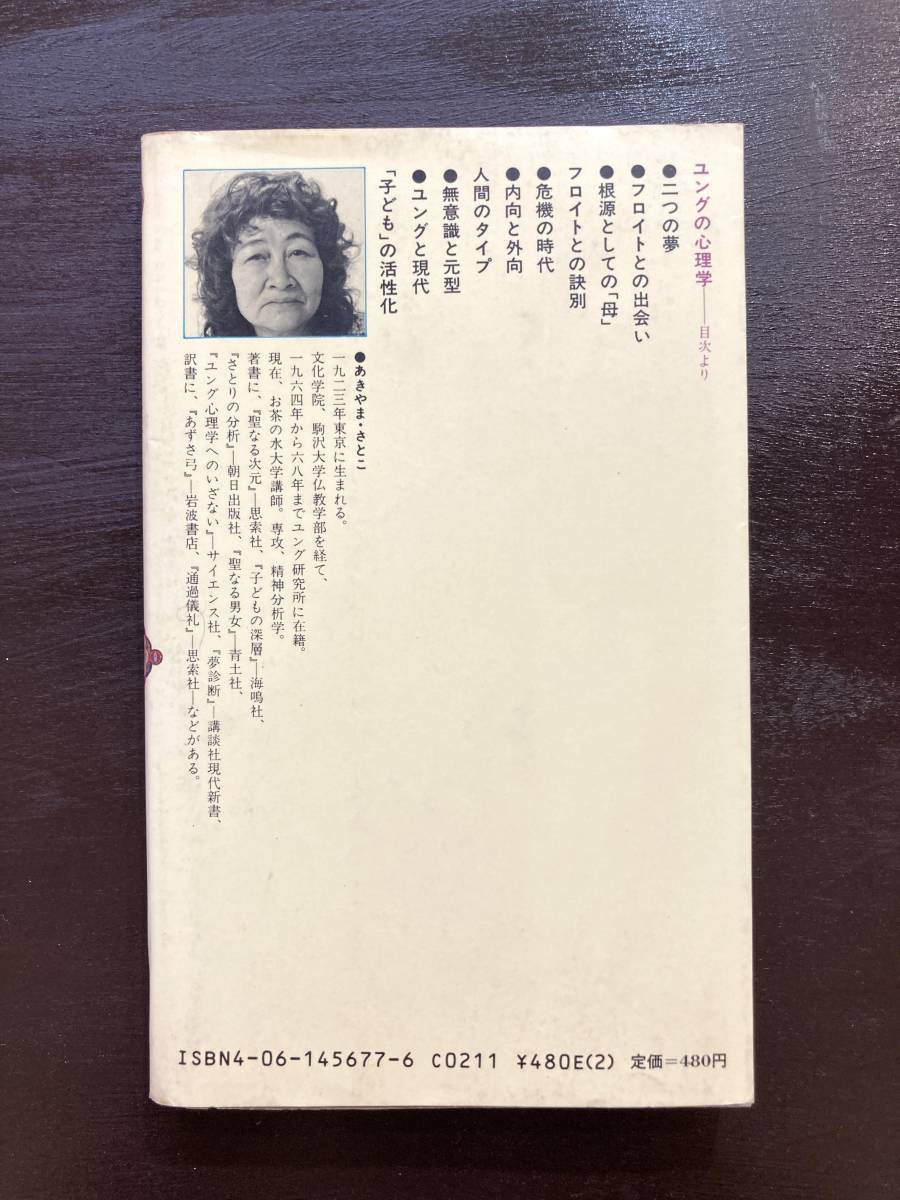 ユングの心理学——目次より
●二つの夢
●フロイトとの出会い
●根源としての「母」
フロイトとの訣別
●危機の時代
●内向と外向
人間のタイプ
●無意識と元型
●ユングと現代
「子ども」の活性化
●あきやま・さとこ
一九二三年東京に生まれる。
文化学院、駒沢大学仏教学部を経て、
一九六四年から六八年までユング研究所に在籍。
現在、お茶の水大学講師。専攻、精神分析学。
著書に、『聖なる次元』—思索社、『子どもの深層』—海鳴社、
『さとりの分析』—朝日出版社、『聖なる男女』—青土社、
『ユング心理学へのいざない』—サイエンス社、『夢診断』—講談社現代新書、
訳書に、『あずさ弓』—岩波書店、『通過儀礼』—思索社—などがある。
ISBN4-06-145677-6 C0211 ¥480E(2) 定価=480円